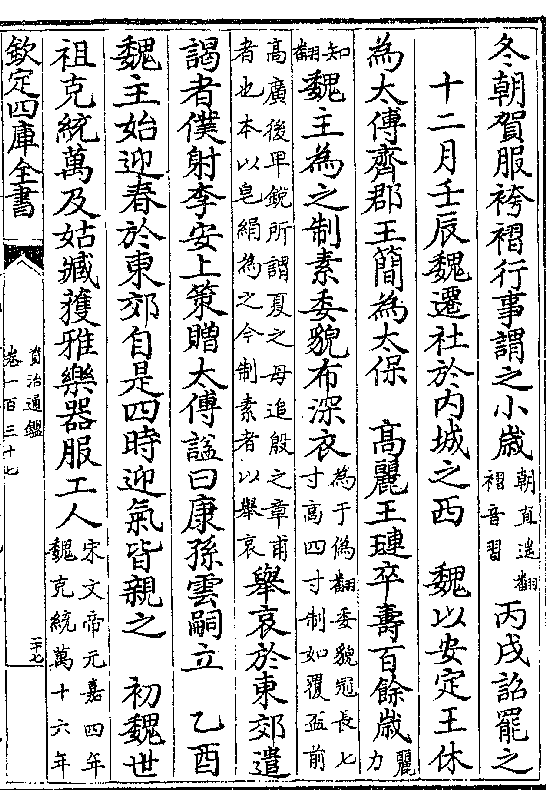 冬朝賀服袴褶行事謂之小歳
朝直遥翻
褶音習
丙戌詔罷之
十二月壬辰魏遷社於内城之西　魏以安定王休
為太傅齊郡王簡為太保　高麗王璉卒壽百餘歳
麗
力
知
翻
魏主為之制素委貌布深衣
為于偽翻委貌冠長七
寸高四寸制如覆盃前
高廣後卑鋭所謂夏之母追殷之章甫
者也本以皂絹為之今制素者以舉哀
舉哀於東郊遣
謁者僕射李安上策贈太傅諡曰康孫雲嗣立　乙酉
魏主始迎春於東郊自是四時迎氣皆親之　初魏世
祖克統萬及姑臧獲雅樂器服工人
宋文帝元嘉四年
魏克統萬十六年
欽定四庫全書
資治通鑑
卷一百三十七
二十七